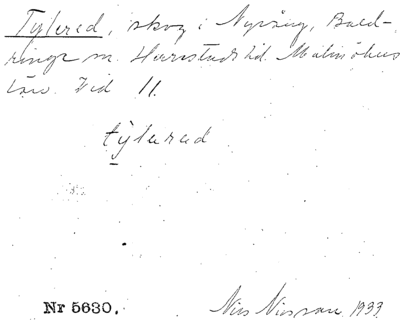 Tylered, skog i Nyvång, Bald-
ringe sn. Herrestads hd. Malmöhus
län. Vid 11.
tylerad
Nr 5630. Nils Nilsson 1933